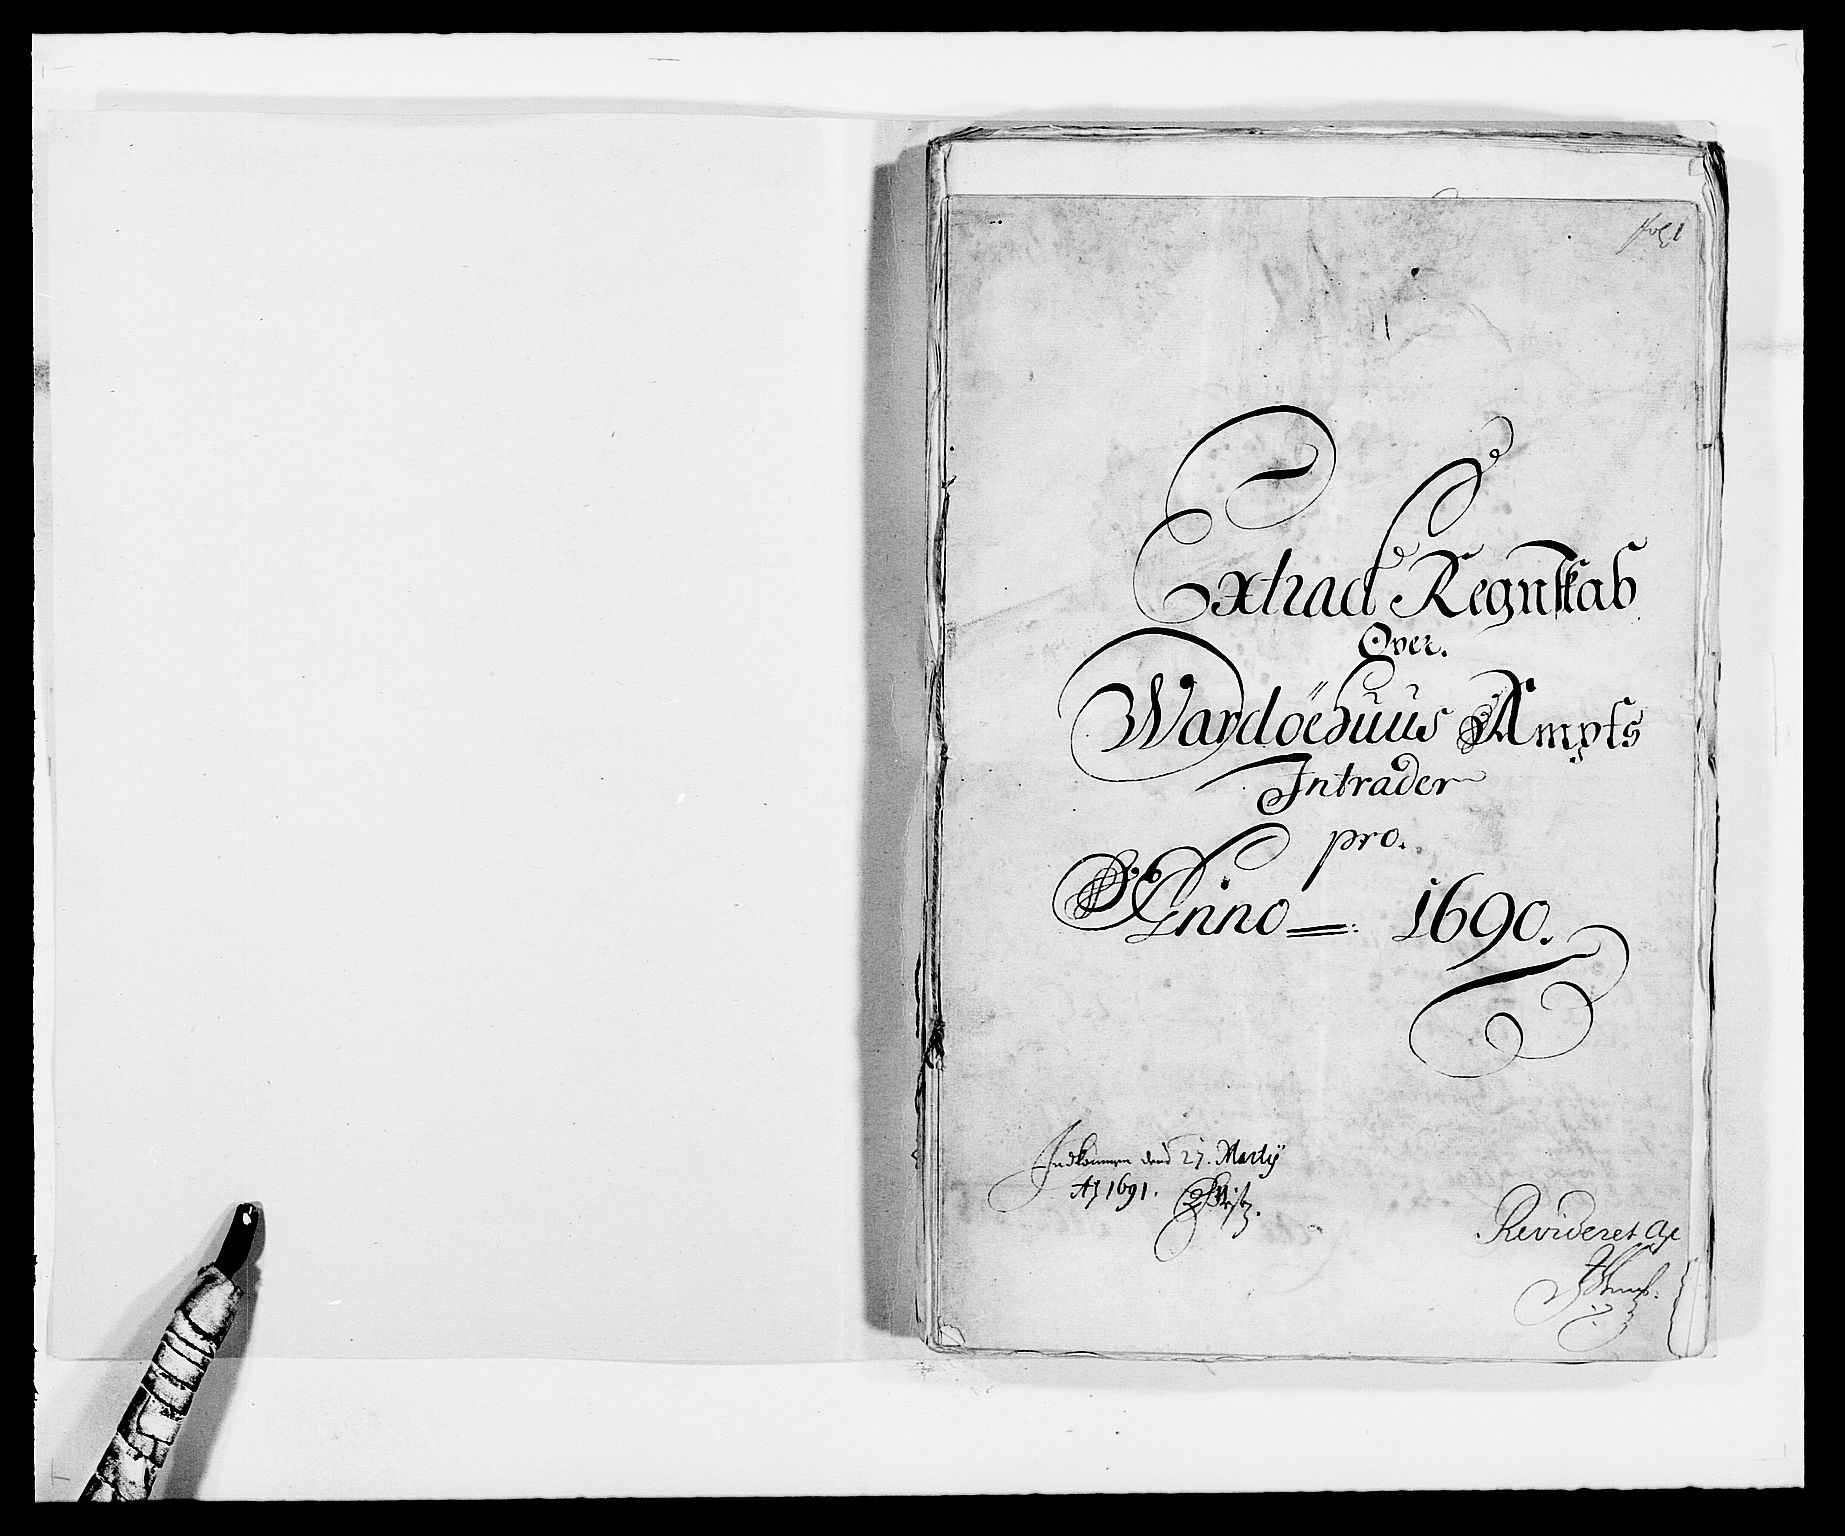 fol 1
Extract Regnskab
Over.
Wardöehuus Ampts
Intrader
pro.
Anno 1690.
Indkommen dend 27. Martij
Aō 1691.
Revideret af